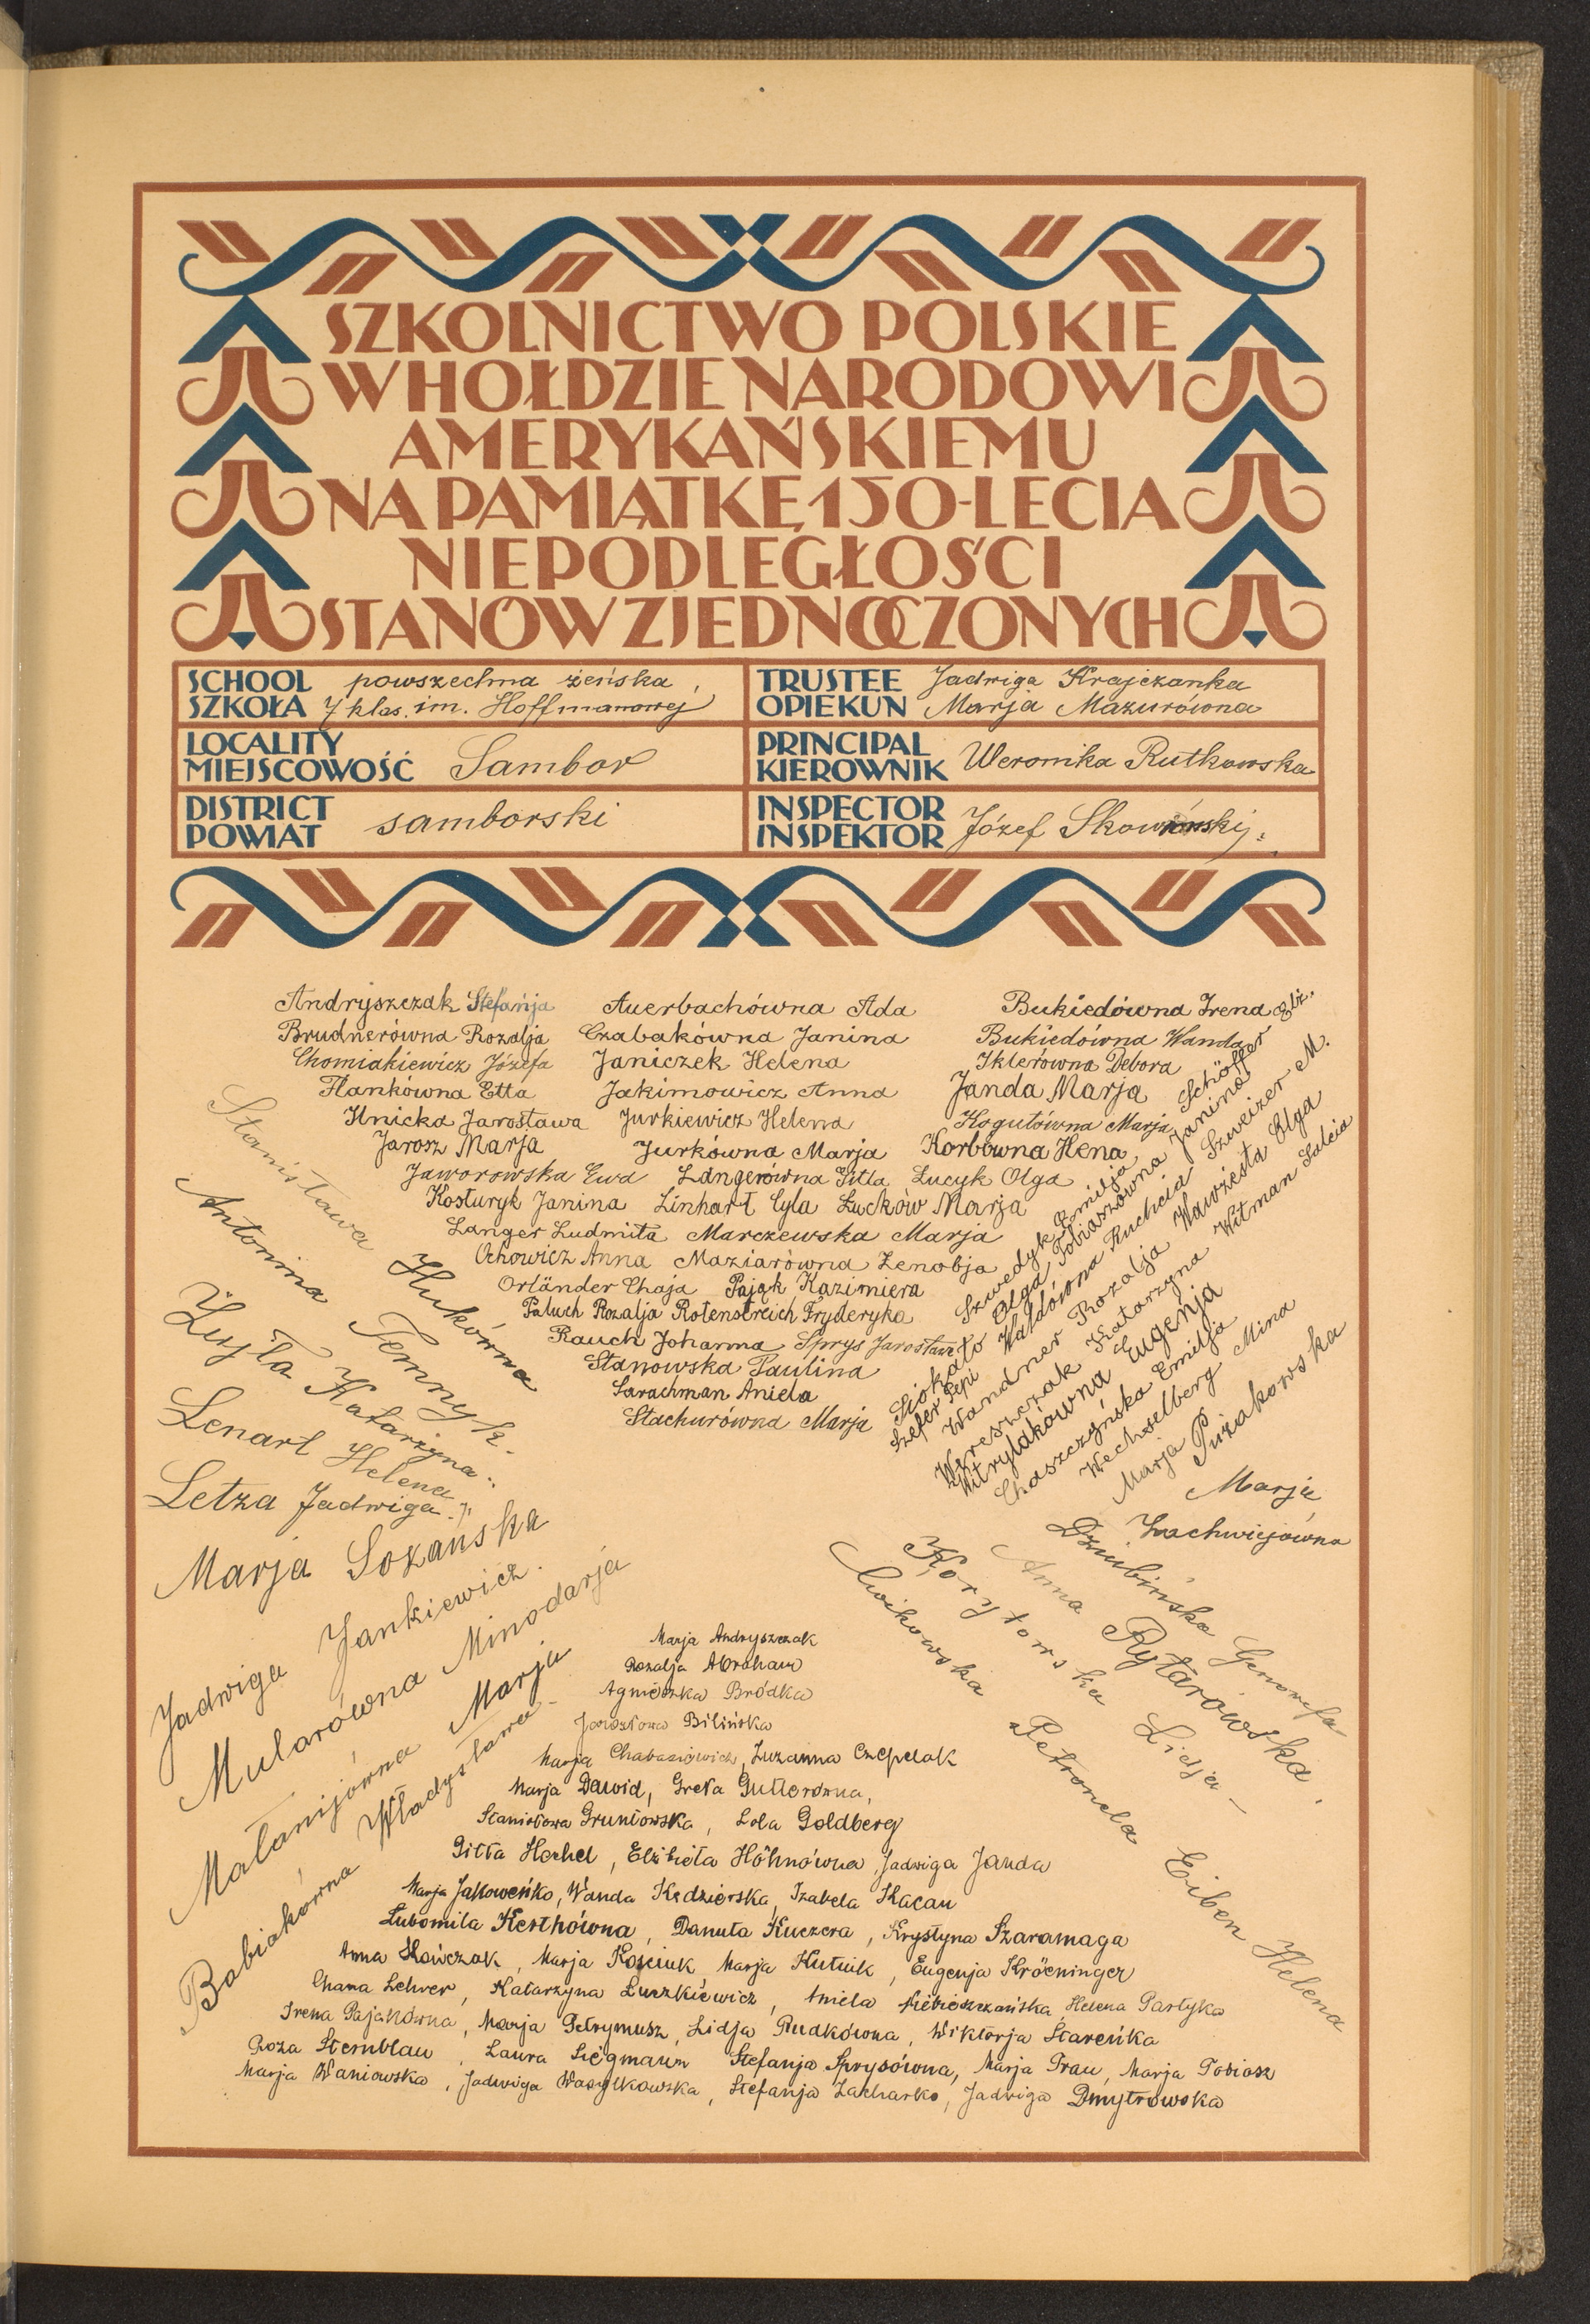 SZKOLNICTWO POLSKIE
W HOŁDZIE NARODOWI
AMERYKAŃSKIEMU
NA PAMIĄTKĘ 150-LECIA
NIEPODLEGŁOŚCI
STANÓW ZJEDNOCZONYCH
SCHOOL
SZKOŁA
powszechna żeńska,
7 klas. im. Hoffmanowej
TRUSTEE
OPIEKUN
Jadwiga Krajczanka
Marja Mazurówna
LOCALITY
MIEJSCOWOŚĆ
Sambor
PRINCIPAL
KIEROWNIK
Weronika Rutkowska
DISTRICT
POWIAT
samborski
INSPECTOR
INSPEKTOR
Józef
Andryszczak Stefanja Auerbachówna Ada Bukiedówna Irena Elż.
Brudnerówna Rozalja Czabakówna Janina Bukiedówna Wanda
Chomiakiewicz Józefa Janiczek Helena Iklerówna Debora
Flankówna Etta Jakimowicz Anna Janda Marja
Ilnicka Jarosława Jurkiewicz Helena Kogutówna Marja
Jarosz Marja Jurkówna Marja Korbówna Hena
Jaworowska Ewa Langerówna Gitla Łucyk Olga
Kosturyk Janina Linhart Cyla Łucków Marja
Langer Ludmiła Marczewska Marja
Ochowicz Anna Maziarówna Zenobja
Orländer Chaja Pająk Kazimiera
Paluch Rozalja Rotenstreich Fryderyka
Rauch Johanna Sprys Jarosława
Stanowska Paulina
Sarachman Aniela
Stachurówna Marja
Szwedyk Emilja Schöffer
Siokało Olga Tobiaszówna Janina
Szefer Pepi Waldówna Ruchcia Szweizer M.
Wandner Rozalja Wawrzesta Olga
Wereszczak Katarzyna Witman Salcia
Witrylakówna Eugenja
Chaszczyńska Emilja
Wechselberg Mina
Marja Pużakowska
Marja
Lachwiejówna
Stanisława Hukówna
Antonina Temnyk.
Żuyła Katarzyna
Lenart Helena
Letza Jadwiga
Marja Sozańska
Jadwiga Jankiewicz.
Mularówna Minodarja
Małanijówna Marja
Babiakówna Władysława
Dziubińska Genowefa
Anna Rytarówska
Korytowska Lidja
Ćwikowska Petronela Eiben Helena
Marja Andryszczak
Rozalja Abraham
Agnieszka Bródka
Jarosława Bilińska
Marja Chabaziewicz, Zuzanna Czepelak
Marja Dawid, Greta Gutterówna,
Stanisława Gruntowska, Lola Goldberg
Gitta Hechel, Elżbieta Höhnówna, Jadwiga Janda
Marja Jakoweńko, Wanda Kędzierska, Izabela Kacan
Lubomila Kesthówna, Danuta Kuczera, Krystyna Szaramaga
Anna Marja Kościuk Marja Kutnik, Eugenja Kröeninger
Chana Lehrer, Katarzyna Łuczkiewicz, Aniela Niebieszczańska, Helena Partyka
Irena Pająkówna, Marja Petrymusz, Lidja Rudkówna, Wiktorja Stareńka
Roza Sternblau, Laura Siegmann Stefanja Sprysówna, Marja Trau, Marja Tobiasz
Marja Waniowska, Jadwiga Wasylkowska, Stefanja Zacharko, Jadwiga Dmytrowska